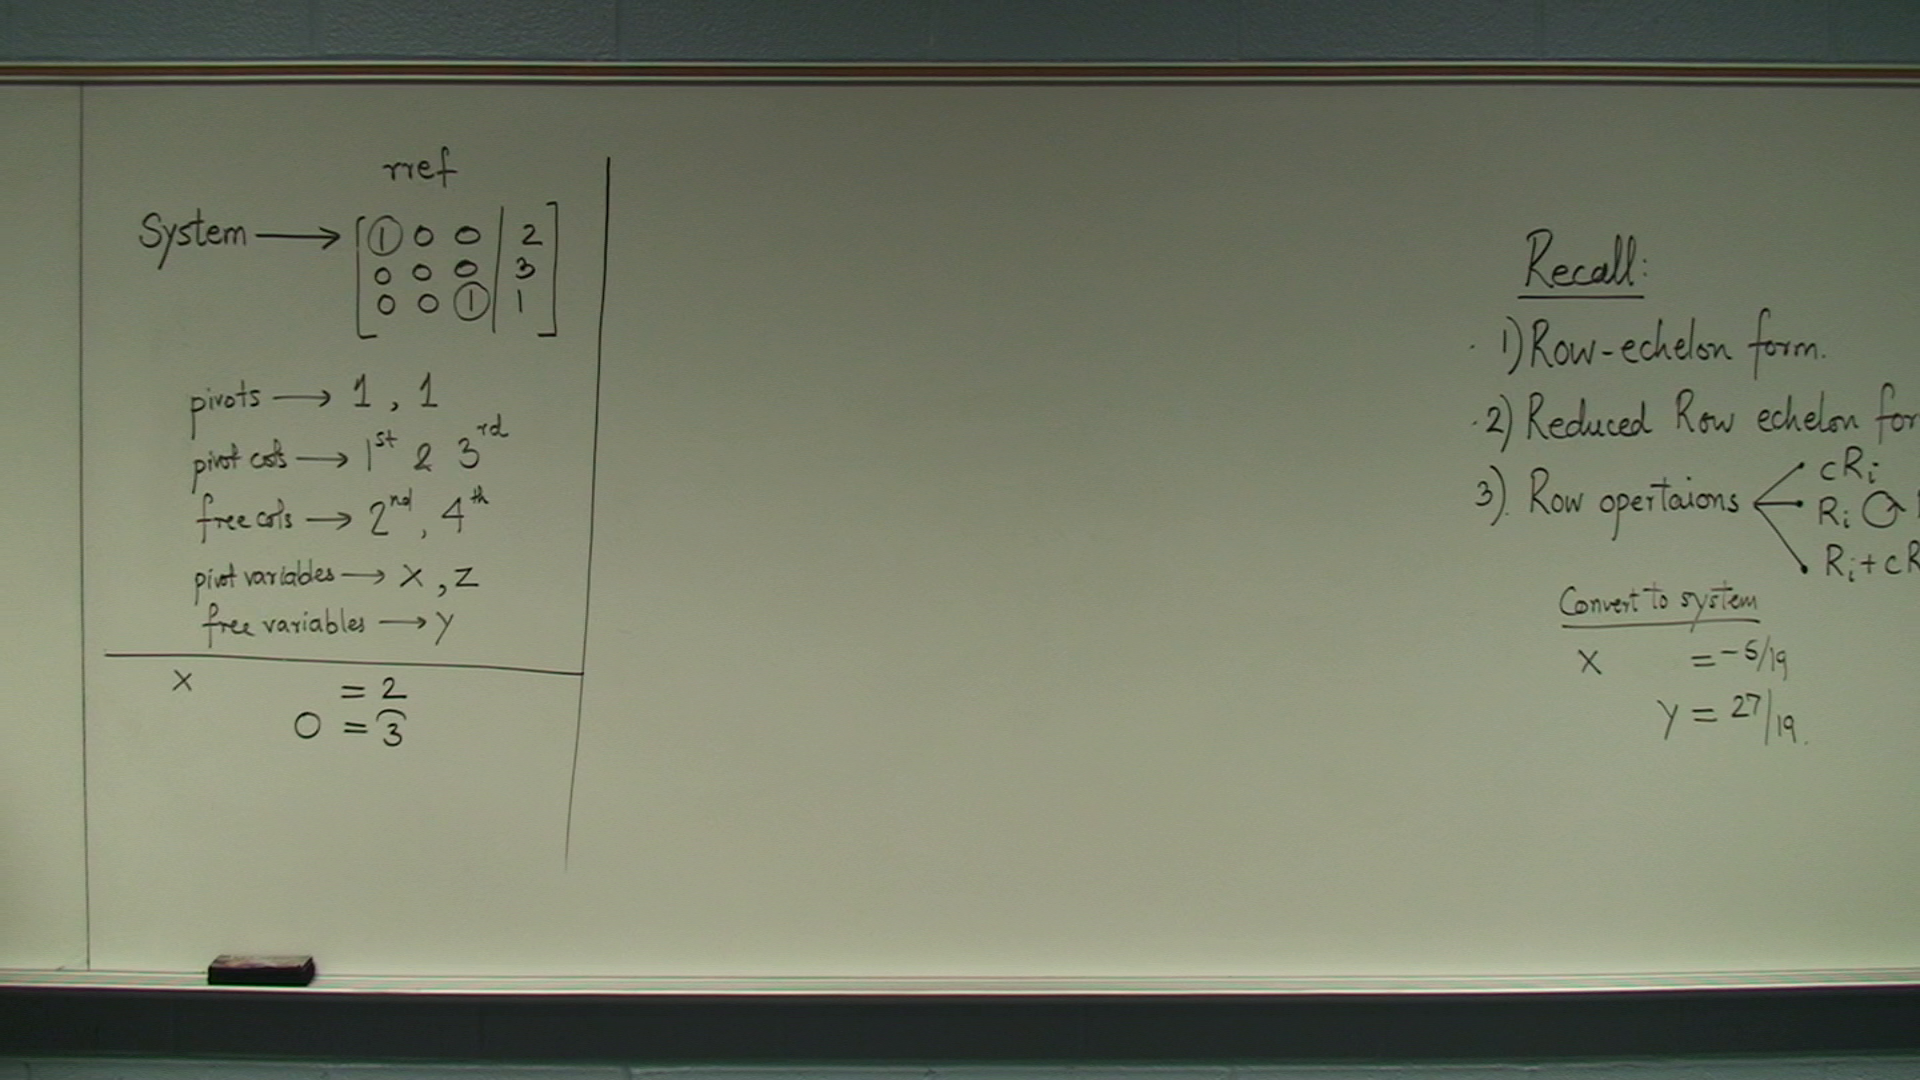 rref
System → [ 1 0 0 | 2 ]
0 0 0 | 3
0 0 1 | 1
pivots → 1, 1
pivot cols → 1st 2 3rd
free cols → 2nd, 4th
pivot variables → x, z
free variables → y
x = 2
0 = 3
Recall:
1) Row-echelon form.
2) Reduced Row echelon for
3). Row opertaions
cRi
Ri
Ri + cR
Convert to system
x = -5/19
y = 27/19.